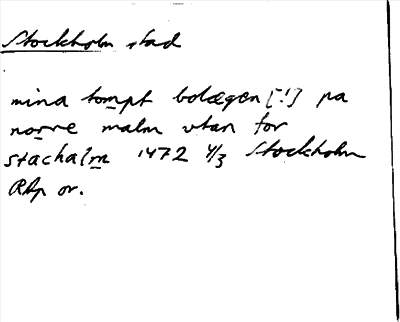 Stockholm stad
mina tompt bolægen [!] pa
norre malm vtan for
stachalm 1472 4/3 Stockholm
RAp or.